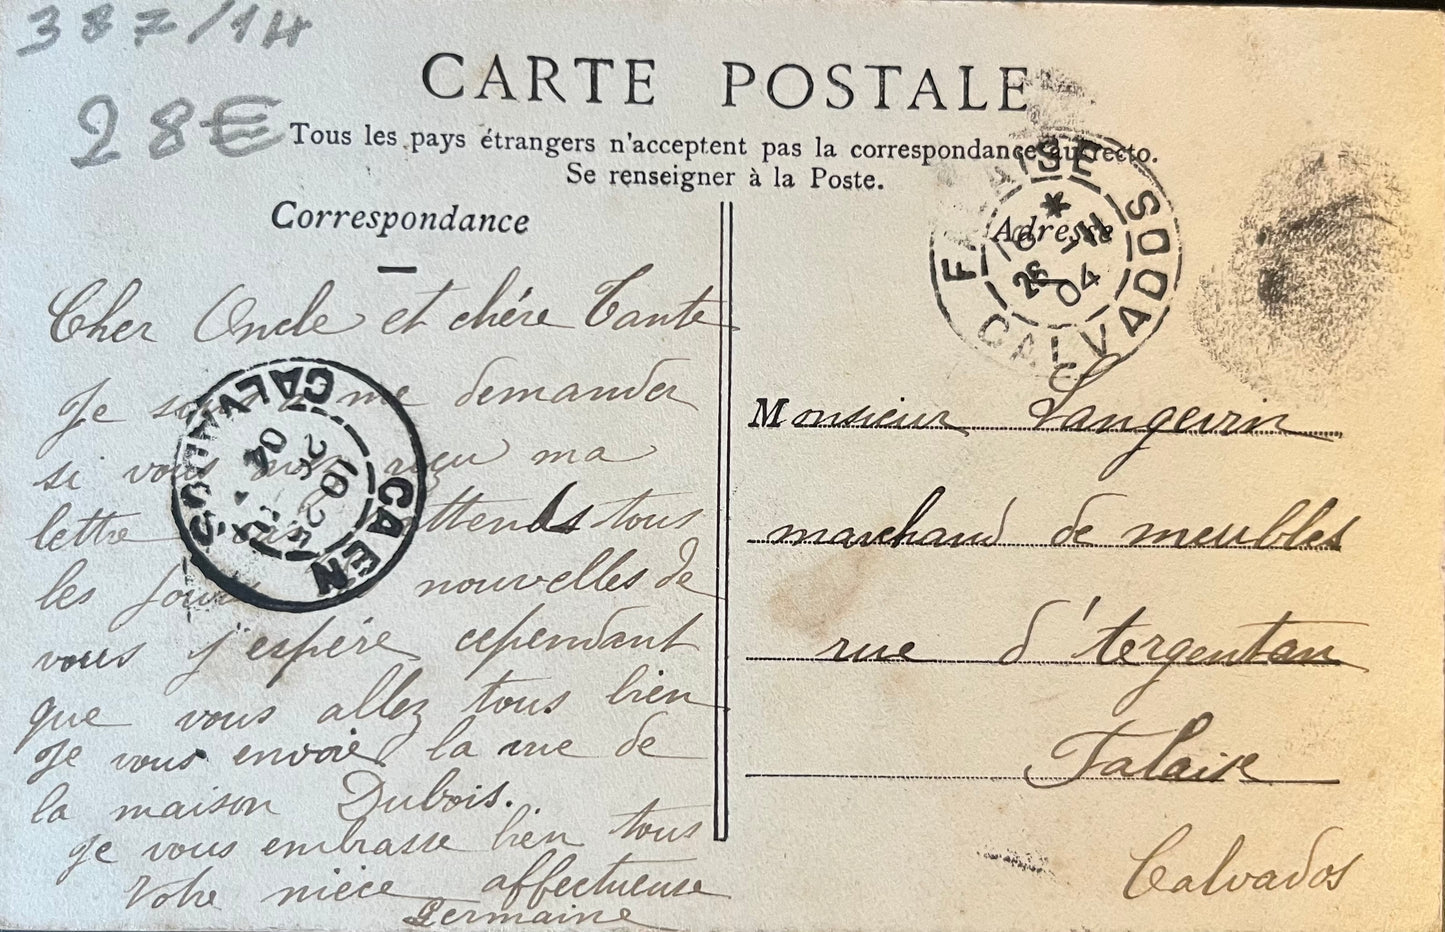 387/14
28€
CARTE POSTALE
Tous les pays étrangers n'acceptent pas la correspondance au recto.
Se renseigner à la Poste.
Correspondance
Adresse
FALAISE
CALVADOS
26
04
Cher Oncle et chére Tante
Je me demander
si vous reçu ma
lettre attends tous
les jours nouvelles de
vous j'espére cependant
que vous allez tous bien
Je vous envoie la vue de
la maison Dubois.
Je vous embrasse bien tous
Votre niéce affectueuse
Germaine
CAEN
CALVADOS
10
04
Monsieur Langevin
marchand de meubles
rue d'Argentan
Falaise
Calvados